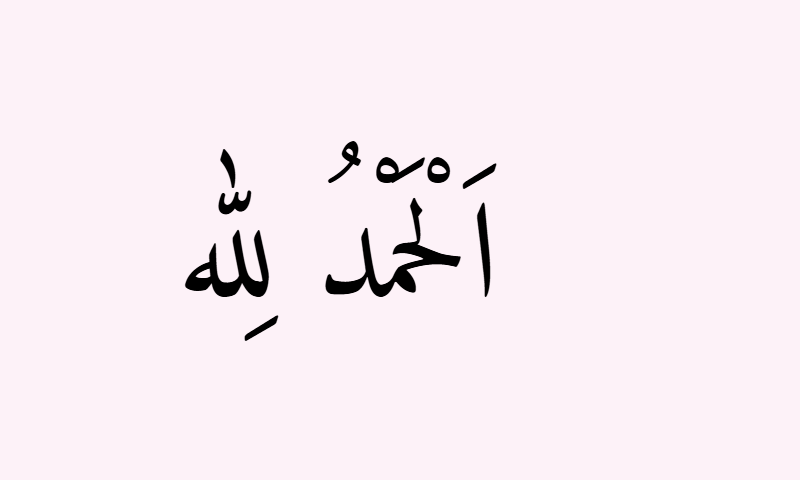 اَلْحَمْدُ لِلّٰه